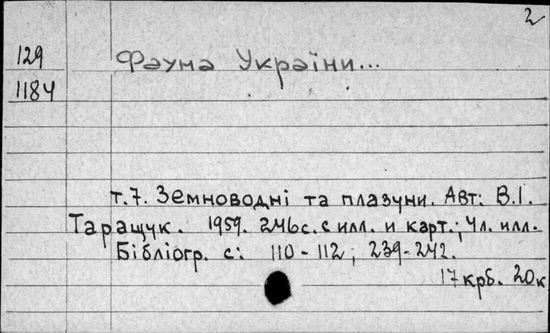 2
129
1184
Фауна України...
т.7. Земноводні та плазуни. Авт: В.І.
Таращук. 1959. 246с. с илл. и карт.; 4л. илл.
Бібліогр. с: 110-112; 239-242.
17крб. 20к